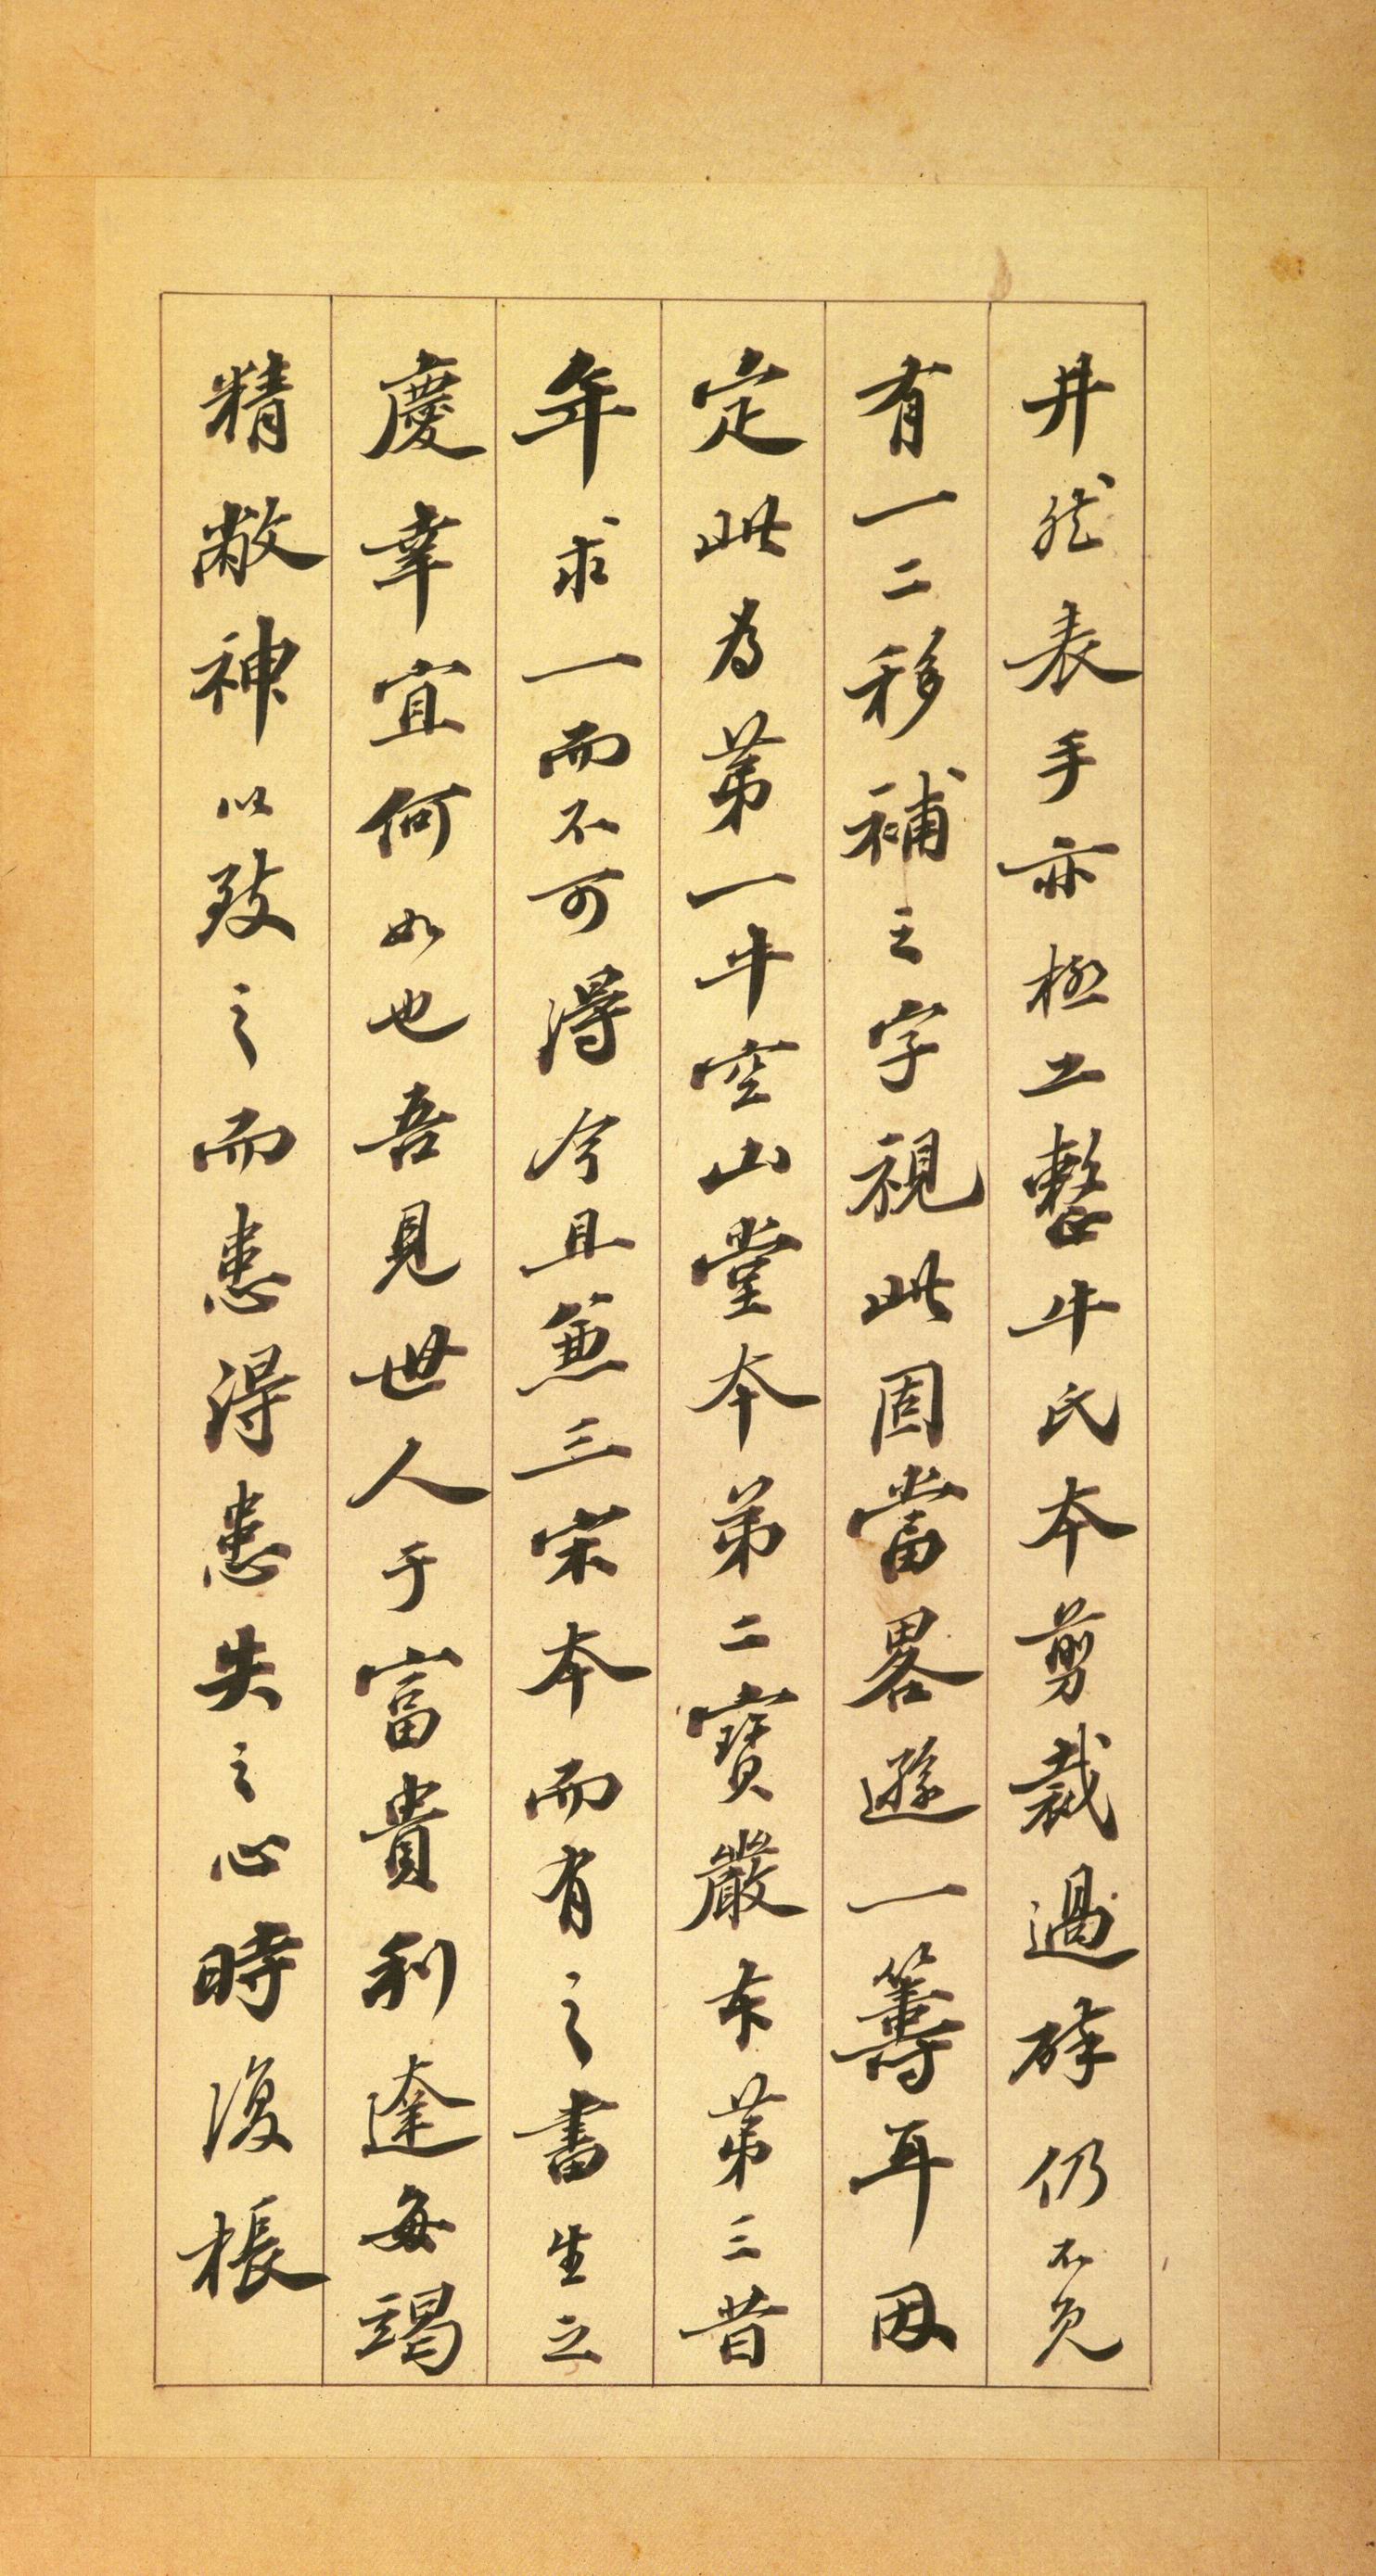 井然表手亦極工整牛氏本剪裁過碎仍不免
有一二移補之字視此固當畧遜一籌耳因
定此為苐一牛空山堂本弟二寶嚴本苐三昔
年求一而不可得今且兼三宋本而有之書生之
慶幸宜何如也吾見世人于富貴利達每竭
精敝神以致之而患得患失之心時復棖